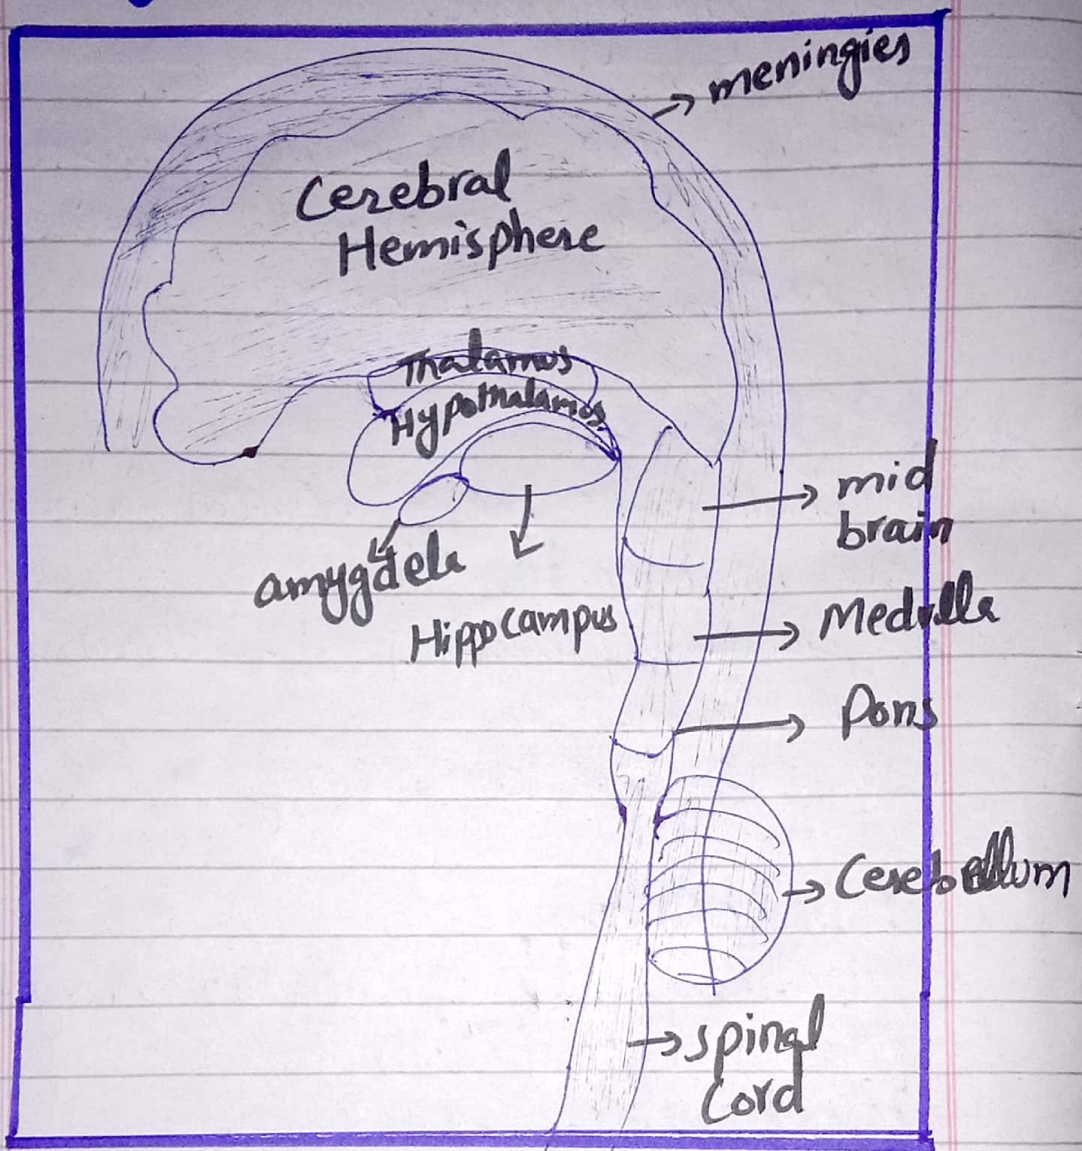 meningies
Cerebral
Hemisphere
Thalamus
Hypothalamus
mid
brain
amygdela
Hippocampus
Medulla
Pons
Cerebellum
spinal
Cord